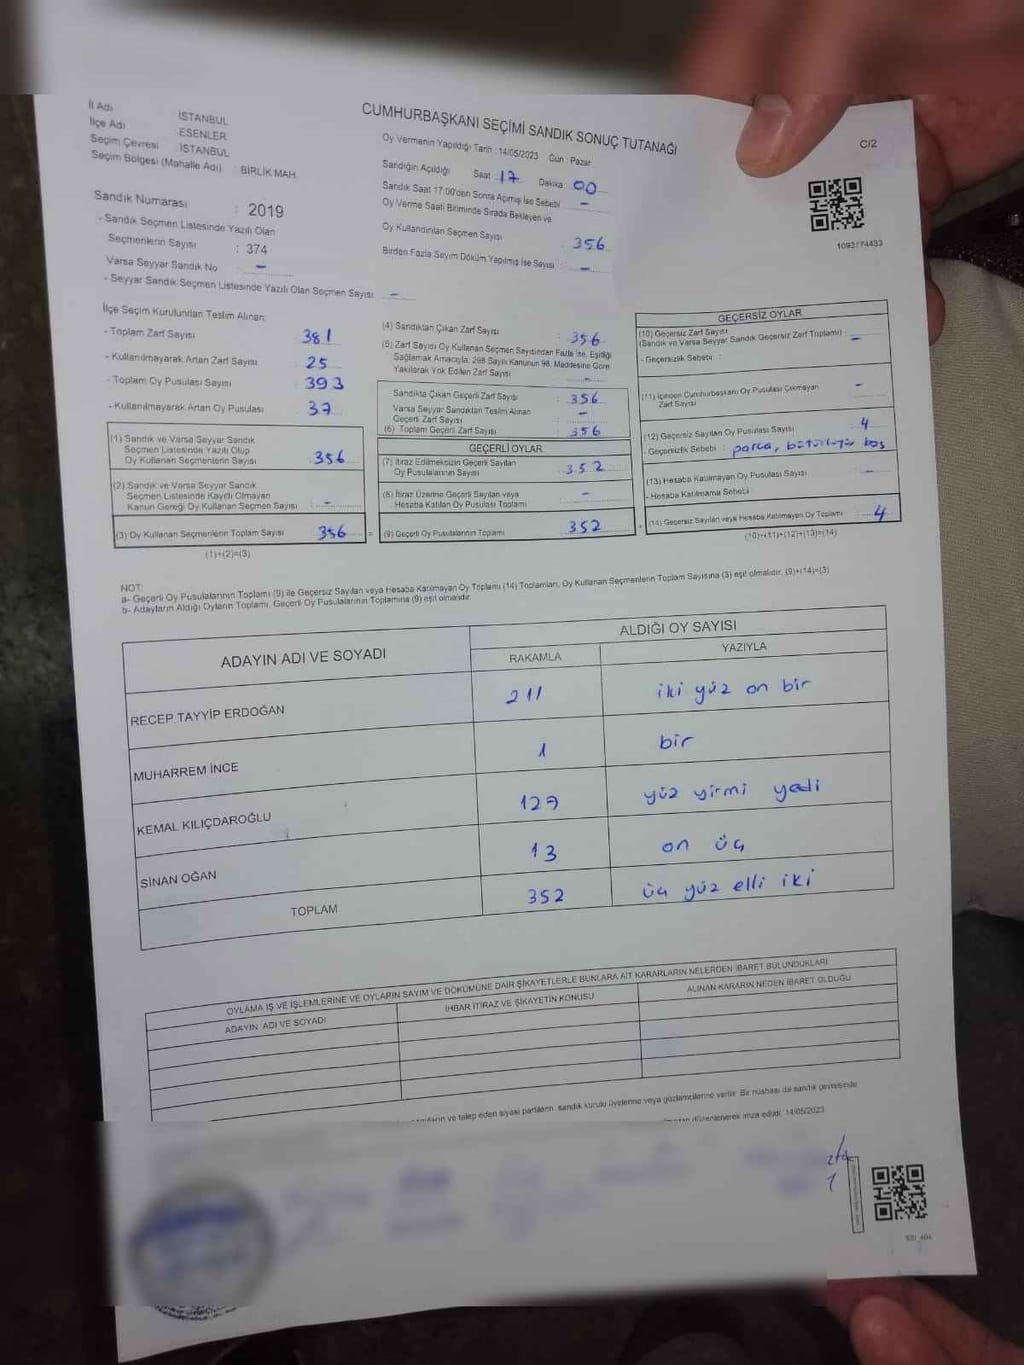 CUMHURBAŞKANI SEÇİMİ SANDIK SONUÇ TUTANAĞI
C/2
İl Adı İSTANBUL
İlçe Adı ESENLER
Seçim Çevresi İSTANBUL
Seçim Bölgesi (Mahalle Adı) BİRLİK MAH.
Sandık Numarası : 2019
- Sandık Seçmen Listesinde Yazılı Olan
Seçmenlerin Sayısı : 374
Varsa Seyyar Sandık No –
- Seyyar Sandık Seçmen Listesinde Yazılı Olan Seçmen Sayısı: –
Oy Vermenin Yapıldığı Tarih :14/05/2023 Gün : Pazar
Sandığın Açıldığı Saat : 17 Dakika : 00
Sandık Saat 17:00'den Sonra Açmış İse Sebebi –
Oy Verme Saati Bitiminde Sırada Bekleyen ve
Oy Kullandırılan Seçmen Sayısı 356
Birden Fazla Sayım Döküm Yapılmış İse Sayısı –
1093774433
İlçe Seçim Kurulundan Teslim Alınan:
- Toplam Zarf Sayısı 381
- Kullanılmayarak Artan Zarf Sayısı 25
- Toplam Oy Pusulası Sayısı 393
- Kullanılmayarak Artan Oy Pusulası 37
(1) Sandık ve Varsa Seyyar Sandık
Seçmen Listesinde Yazılı Olup
Oy Kullanan Seçmenlerin Sayısı : 356
(2) Sandık ve Varsa Seyyar Sandık
Seçmen Listesinde Kayıtlı Olmayan
Kanun Gereği Oy Kullanan Seçmen Sayısı : –
(3) Oy Kullanan Seçmenlerin Toplam Sayısı 356 =
(1)+(2)=(3)
(4) Sandıktan Çıkan Zarf Sayısı : 356
(5) Zarf Sayısı Oy Kullanan Seçmen Sayısından Fazla İse, Eşitliği
Sağlamak Amacıyla; 298 Sayılı Kanunun 98. Maddesine Göre
Yakılarak Yok Edilen Zarf Sayısı –
Sandıkta Çıkan Geçerli Zarf Sayısı : 356
Varsa Seyyar Sandıktan Teslim Alınan
Geçerli Zarf Sayısı : –
(6) Toplam Geçerli Zarf Sayısı : 356
GEÇERLİ OYLAR
(7) İtiraz Edilmeksizin Geçerli Sayılan
Oy Pusulalarının Sayısı : 352
(8) İtiraz Üzerine Geçerli Sayılan veya
Hesaba Katılan Oy Pusulası Toplamı : –
(9) Geçerli Oy Pusulalarının Toplamı 352 +
GEÇERSİZ OYLAR
(10) Geçersiz Zarf Sayısı
(Sandık ve Varsa Seyyar Sandık Geçersiz Zarf Toplamı) : –
- Geçersizlik Sebebi :
(11) İçinden Cumhurbaşkanı Oy Pusulası Çıkmayan
Zarf Sayısı –
(12) Geçersiz Sayılan Oy Pusulası Sayısı : 4
- Geçersizlik Sebebi : boş
(13) Hesaba Katılmayan Oy Pusulası Sayısı –
- Hesaba Katılmama Sebebi
(14) Geçersiz Sayılan veya Hesaba Katılmayan Oy Toplamı : 4
(10)+(11)+(12)+(13)=(14)
NOT:
a- Geçerli Oy Pusulalarının Toplamı (9) ile Geçersiz Sayılan veya Hesaba Katılmayan Oy Toplamı (14) Toplamları, Oy Kullanan Seçmenlerin Toplam Sayısına (3) eşit olmalıdır. (9)+(14)=(3)
b- Adayların Aldığı Oyların Toplamı, Geçerli Oy Pusulalarının Toplamına (9) eşit olmalıdır.
ADAYIN ADI VE SOYADI ALDIĞI OY SAYISI
RAKAMLA YAZIYLA
RECEP TAYYİP ERDOĞAN 211 iki yüz on bir
MUHARREM İNCE 1 bir
KEMAL KILIÇDAROĞLU 127 yüz yirmi yedi
SİNAN OĞAN 13 on üç
TOPLAM 352 üç yüz elli iki
OYLAMA İŞ VE İŞLEMLERİNE VE OYLARIN SAYIM VE DÖKÜMÜNE DAİR ŞİKAYETLERLE BUNLARA AİT KARARLARIN NELERDEN İBARET BULUNDUKLARI
ADAYIN ADI VE SOYADI İHBAR İTİRAZ VE ŞİKAYETİN KONUSU ALINAN KARARIN NEDEN İBARET OLDUĞU
ve talep eden siyasi partilerin, sandık kurulu üyelerine veya gözlemcilerine verilir. Bir nüshası da sandık çevresinde
düzenlenerek imza edildi. 14/05/2023